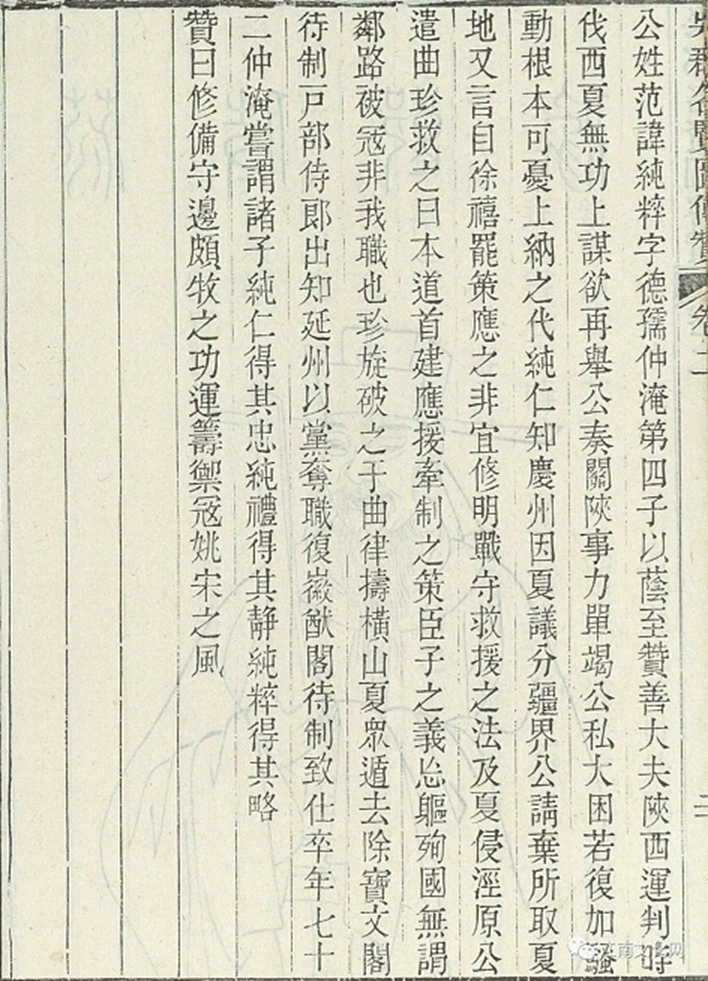 吳郡名賢圖傳贊 卷二 二
公姓范諱純粹字德孺仲淹第四子以蔭至贊善大夫陝西運判時
伐西夏無功上謀欲再舉公奏關陝事力單竭公私大困若復加騷
動根本可憂上納之代純仁知慶州因夏議分疆界公請棄所取夏
地又言自徐禧罷策應之非宜修明戰守救援之法及夏侵涇原公
遣曲珍救之曰本道首建應援牽制之策臣子之義忘軀殉國無謂
鄰路破寇非我職也珍旋破之于曲律擣橫山夏衆遁去除寶文閣
待制戸部侍郎出知延州以黨奪職復徽猷閣待制致仕卒年七十
二仲淹嘗謂諸子純仁得其忠純禮得其靜純粹得其略
贊曰修備守邊頗牧之功運籌禦寇姚宋之風
江南文化网